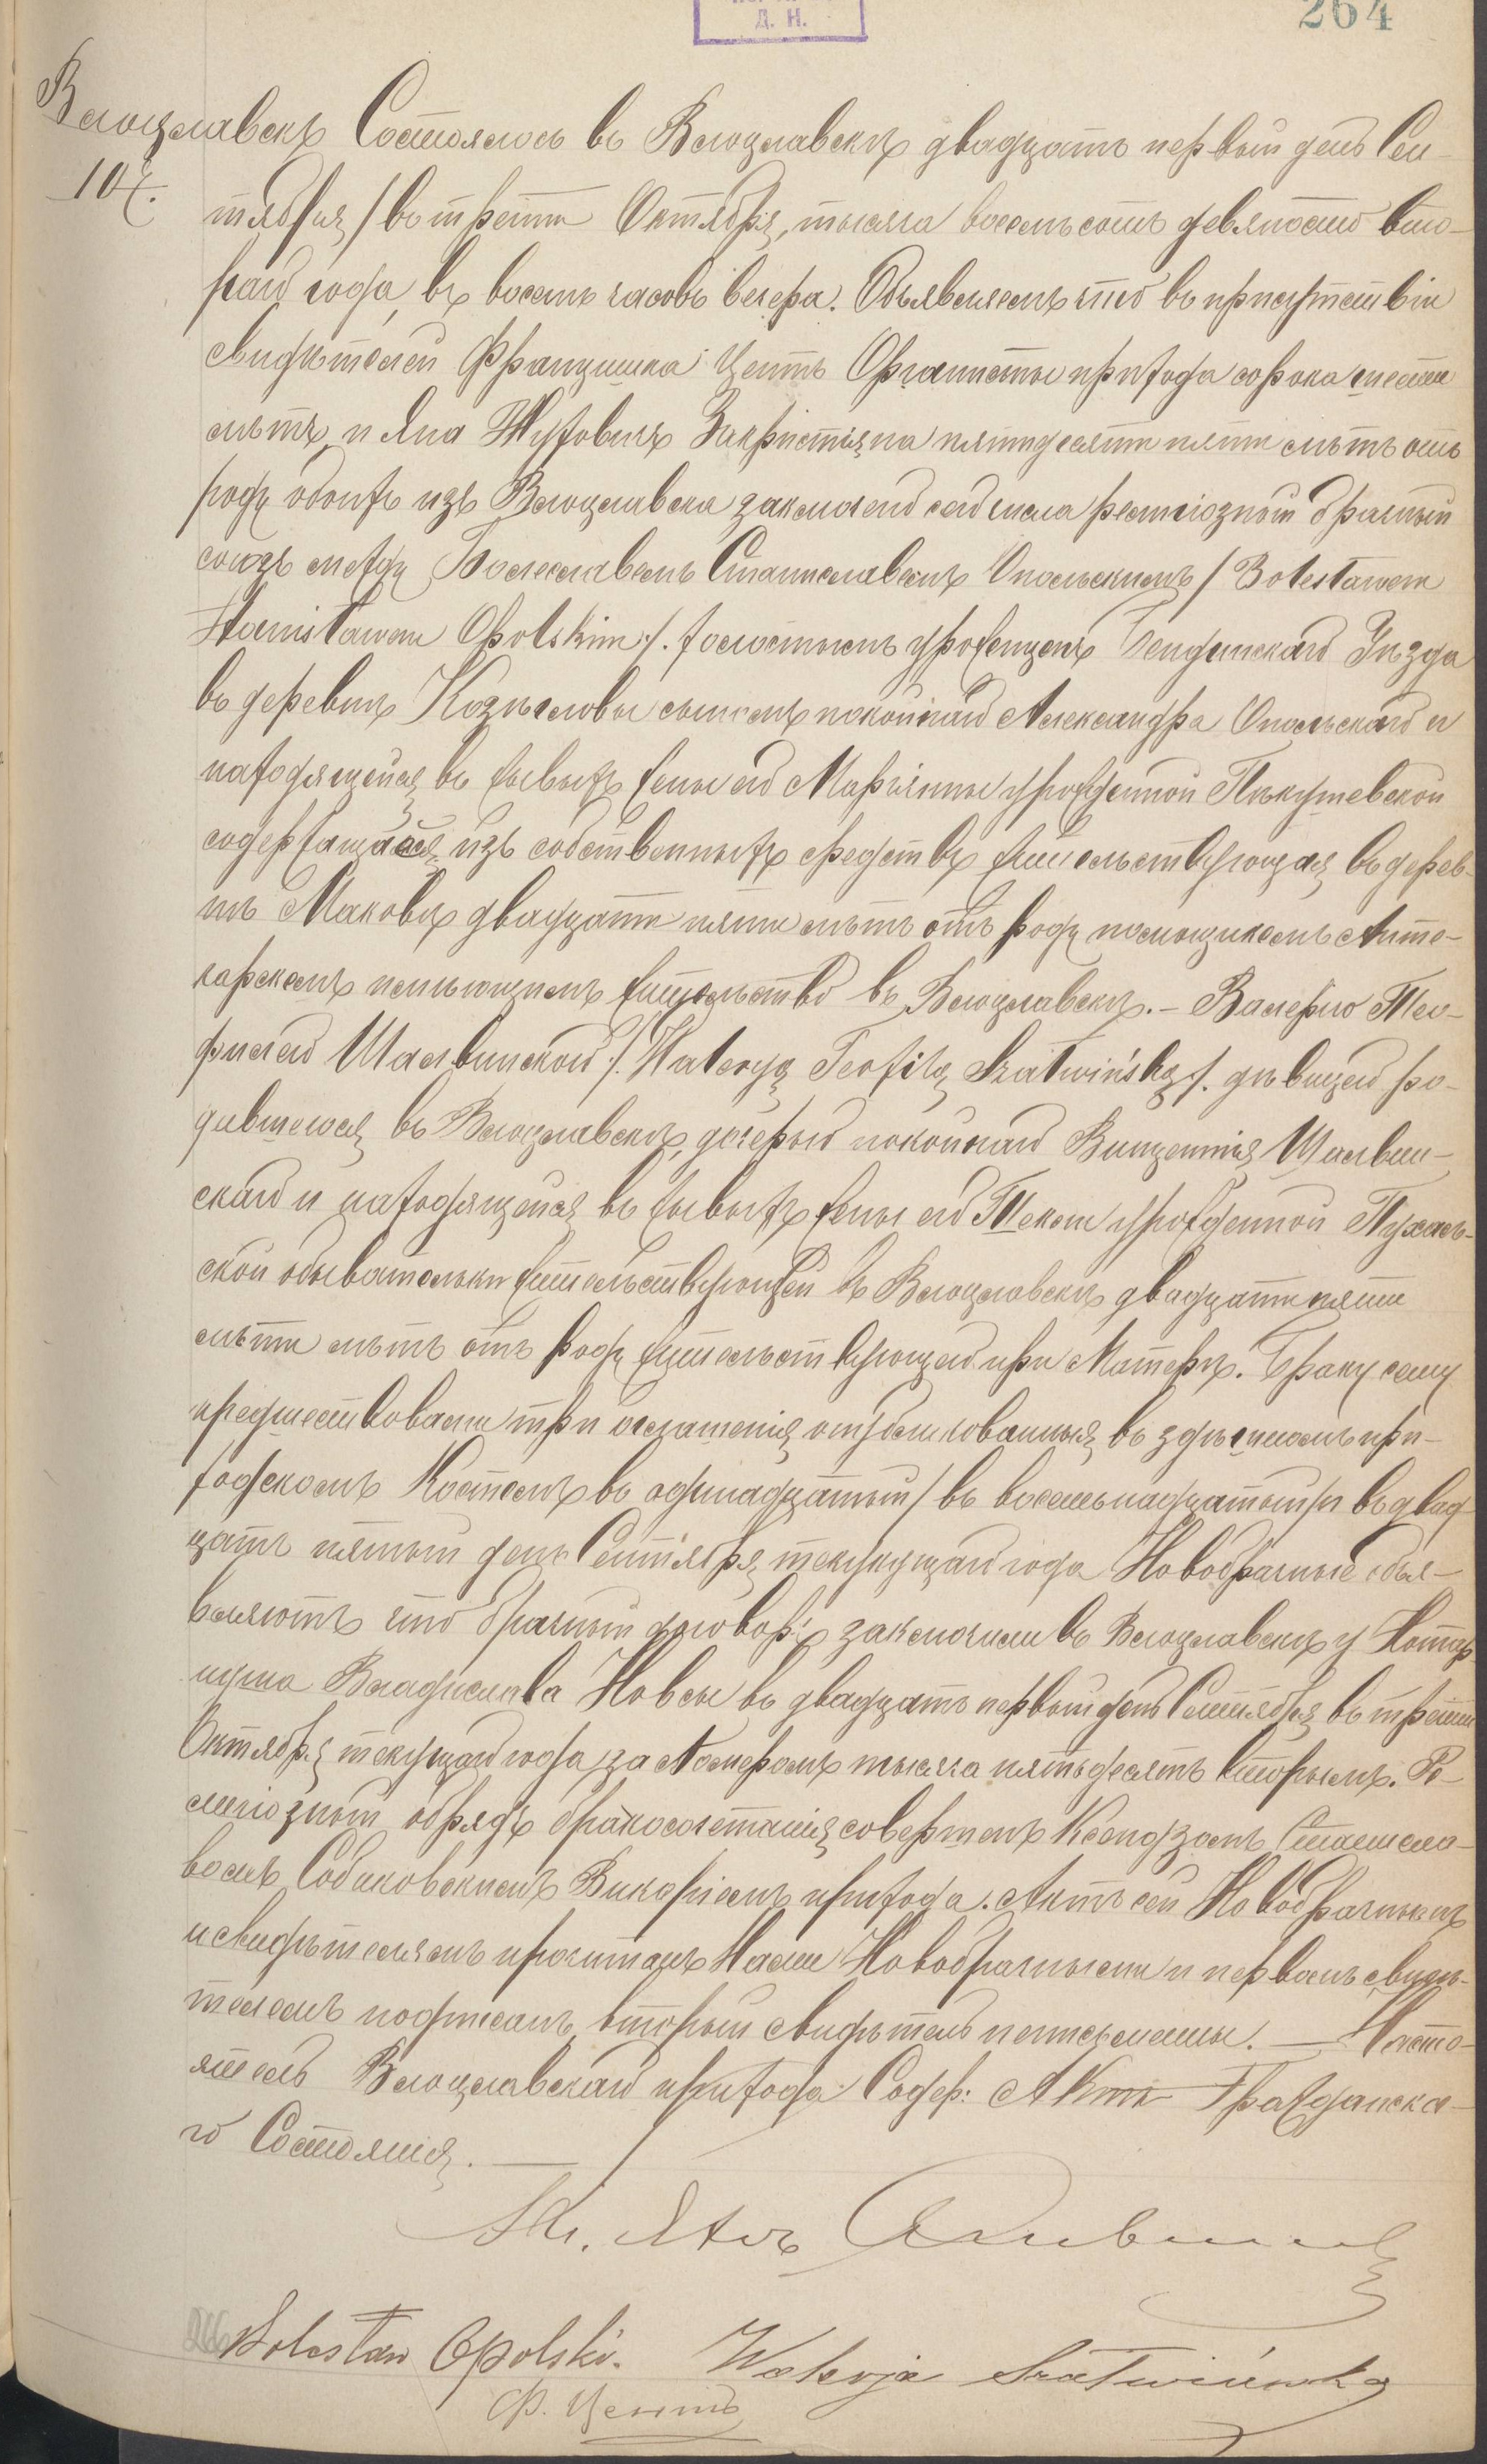 Д. Н.
264
Влоцлавекъ Состоялось въ Влоцлавскѣ двадцать первый день Сен-
107. тября /въ третіи Октября, тысяча восемьсотъ девяносто вто-
раго года, въ восемь часовъ вечера. Объявляемъ что въ присутствіи
свидѣтелей Францишка Центъ Органисты прихода сорока шести
лѣтъ, и Яна Закристіяна пятидесяти пяти лѣтъ отъ
роду обоихъ изъ Влоцлавска заключено сего числа религіозный брачный
союзъ между Болеславемъ Станиславемъ Опольскимъ /Bolesławem
Stanisławem Opolskim/. холостымъ урожденцемъ Бендинскаго Уѣзда
въ деревнѣ сыномъ покойнаго Александра Опольскаго и
находящейся въ живыхъ жены его Маріянны урожденной
содержащейся изъ собственныхъ средствъ жительствующая въ дерев-
нѣ Маковѣ двадцати пяти лѣтъ отъ роду помощникомъ Апте-
карскемъ имѣющимъ жительство въ Влоцлавскѣ.— Валерію Тео-
филею Шалвинской /. Waleryą Teofilą Szałwińską/. дѣвицею ро-
дившеюся въ Влоцлавскѣ, дочерью покойнаго Винцентія Шалвин-
скаго и находящейся въ живыхъ жены его Текли урожденной Пухаль-
ской обывательки жительствующей въ Влоцловскѣ двадцати пяти
лѣти лѣтъ отъ роду жительствующею при Матерѣ. Браку сему
предшествовали три оглашенія опубликованныя въ здѣшнемъ при-
ходскомъ Костелѣ въ одинадцатый /въ восемьнадцатый/ и въ двад-
цать пятый день Сентября текущаго года Новобрачные объя-
вляютъ что брачный договоръ заключили въ Влоцлавскѣ у Нотар-
иуша Владислава Новсы въ двадцать первый день Сентября въ третіи
Октября текущаго года за Номеромъ тысяча пятьдесятъ вторымъ. Ре-
лигіозный обрядъ бракосочетанія совершенъ Ксендзомъ Станисла-
вомъ Собиковскимъ Викаріемъ прихода. Актъ сей Новобрачнымъ
и свидѣтелямъ прочитанъ Нами Новобрачными и первымъ свидѣ-
телемъ подписанъ, вторый свидѣтель неписьменны.— Насто-
ятель Влоцлавскаго прихода Содер: Акты Гражданска-
го Состоянія.—
Кс. Янъ
Bolesław Opolski. Walerja Szałwińska
Ф. Центъ